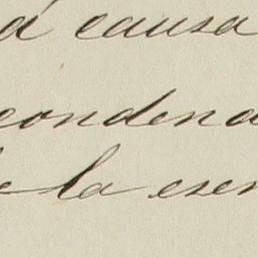 a causa
condena
de la esen